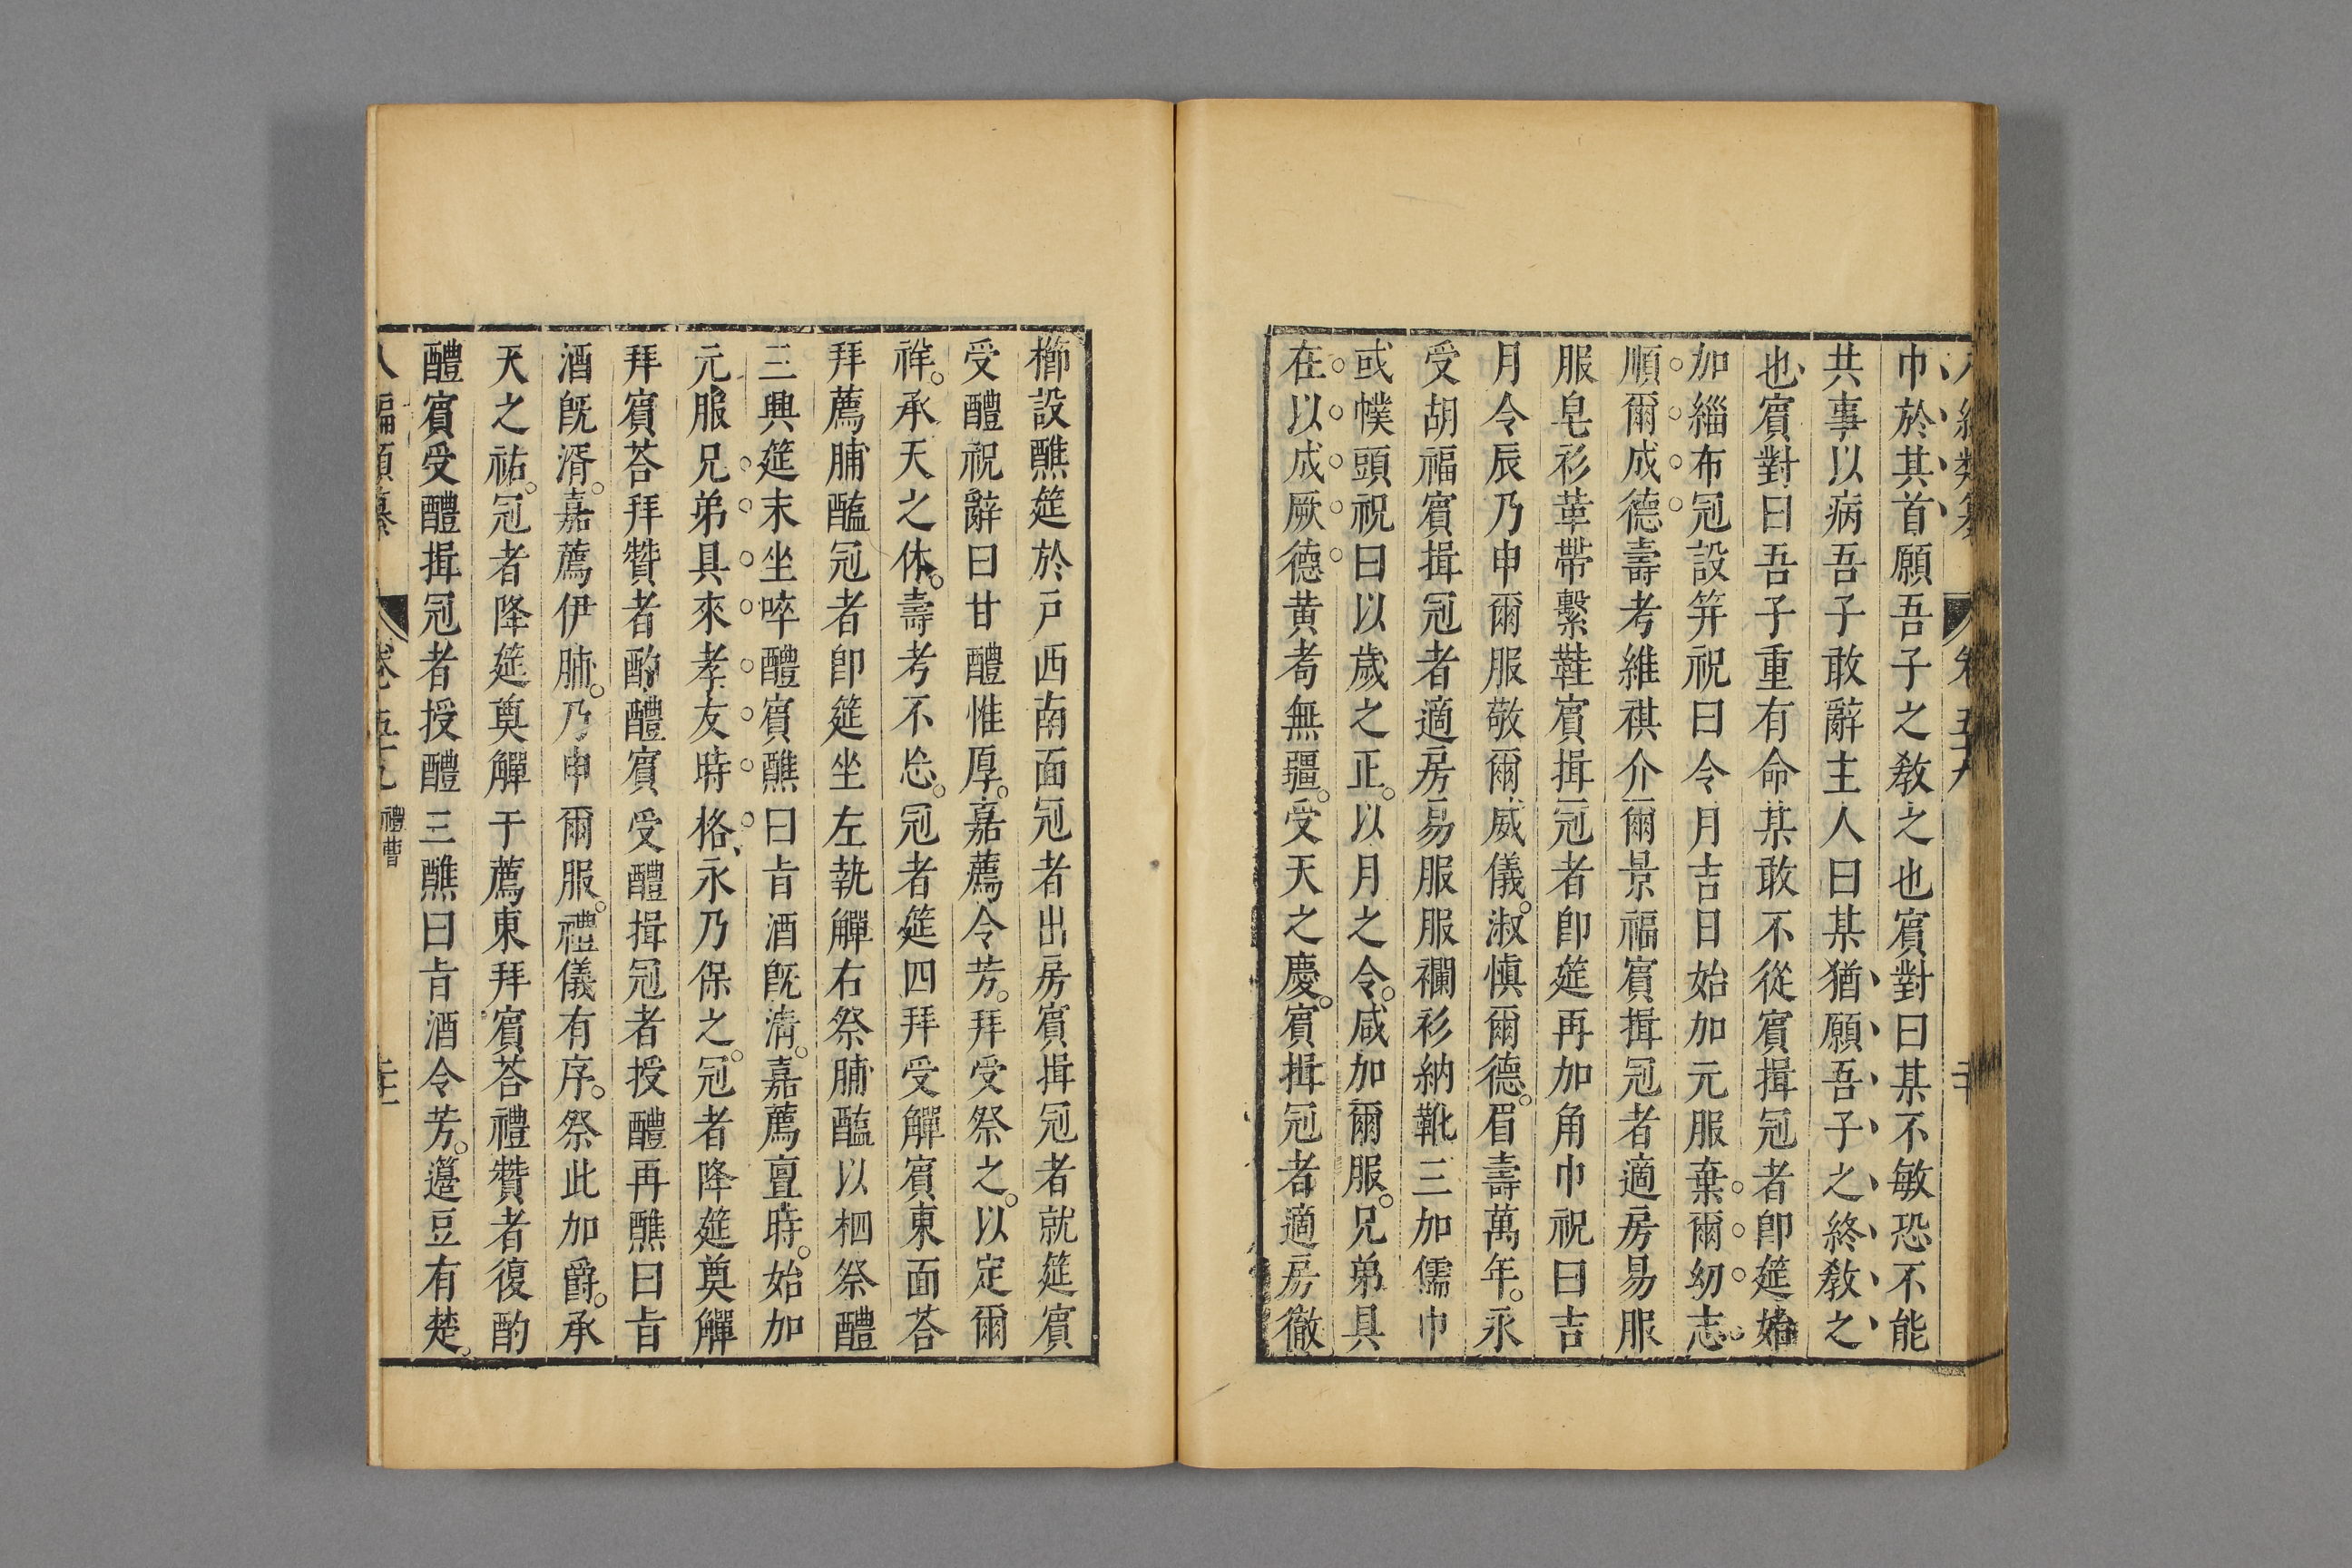 巾於其首願吾子之敎之也賓對曰某不敏恐不能
共事以病吾子敢辭主人曰某猶願吾子之終敎之
也賓對曰吾子重有命某敢不從賓揖冠者卽筵始
加緇布冠設筓祝曰令月吉日始加元服棄爾幼志
順爾成德壽考維祺介爾景福賓揖冠者適房易服
服皂衫革帶繫鞋賓揖冠者卽筵再加角巾祝曰吉
月令辰乃申爾服敬爾威儀淑愼爾德眉壽萬年永
受胡福賓揖冠者適房易服服襴衫納靴三加儒巾
或幞頭祝曰以歲之正以月之令咸加爾服兄弟具
在以成厥德黄耇無疆受天之慶賓揖冠者適房徹
櫛設醮筵於戸西南面冠者出房賓揖冠者就筵賓
受醴祝辭曰甘醴惟厚嘉薦令芳拜受祭之以定爾
祥承天之休壽考不忘冠者筵四拜受觶賓東面荅
拜薦脯醢冠者卽筵坐左執觶右祭脯醢以柶祭醴
三興筵末坐啐醴賓醮曰旨酒旣淸嘉薦亶時始加
元服兄弟具來孝友時格永乃保之冠者降筵奠觶
拜賓荅拜贊者酌醴賓受醴揖冠者授醴再醮曰旨
酒旣湑嘉薦伊脯乃申爾服禮儀有序祭此加爵承
天之祜冠者降筵奠觶于薦東拜賓荅禮贊者復酌
醴賓受醴揖冠者授醴三醮曰旨酒令芳籩豆有楚
禮曹